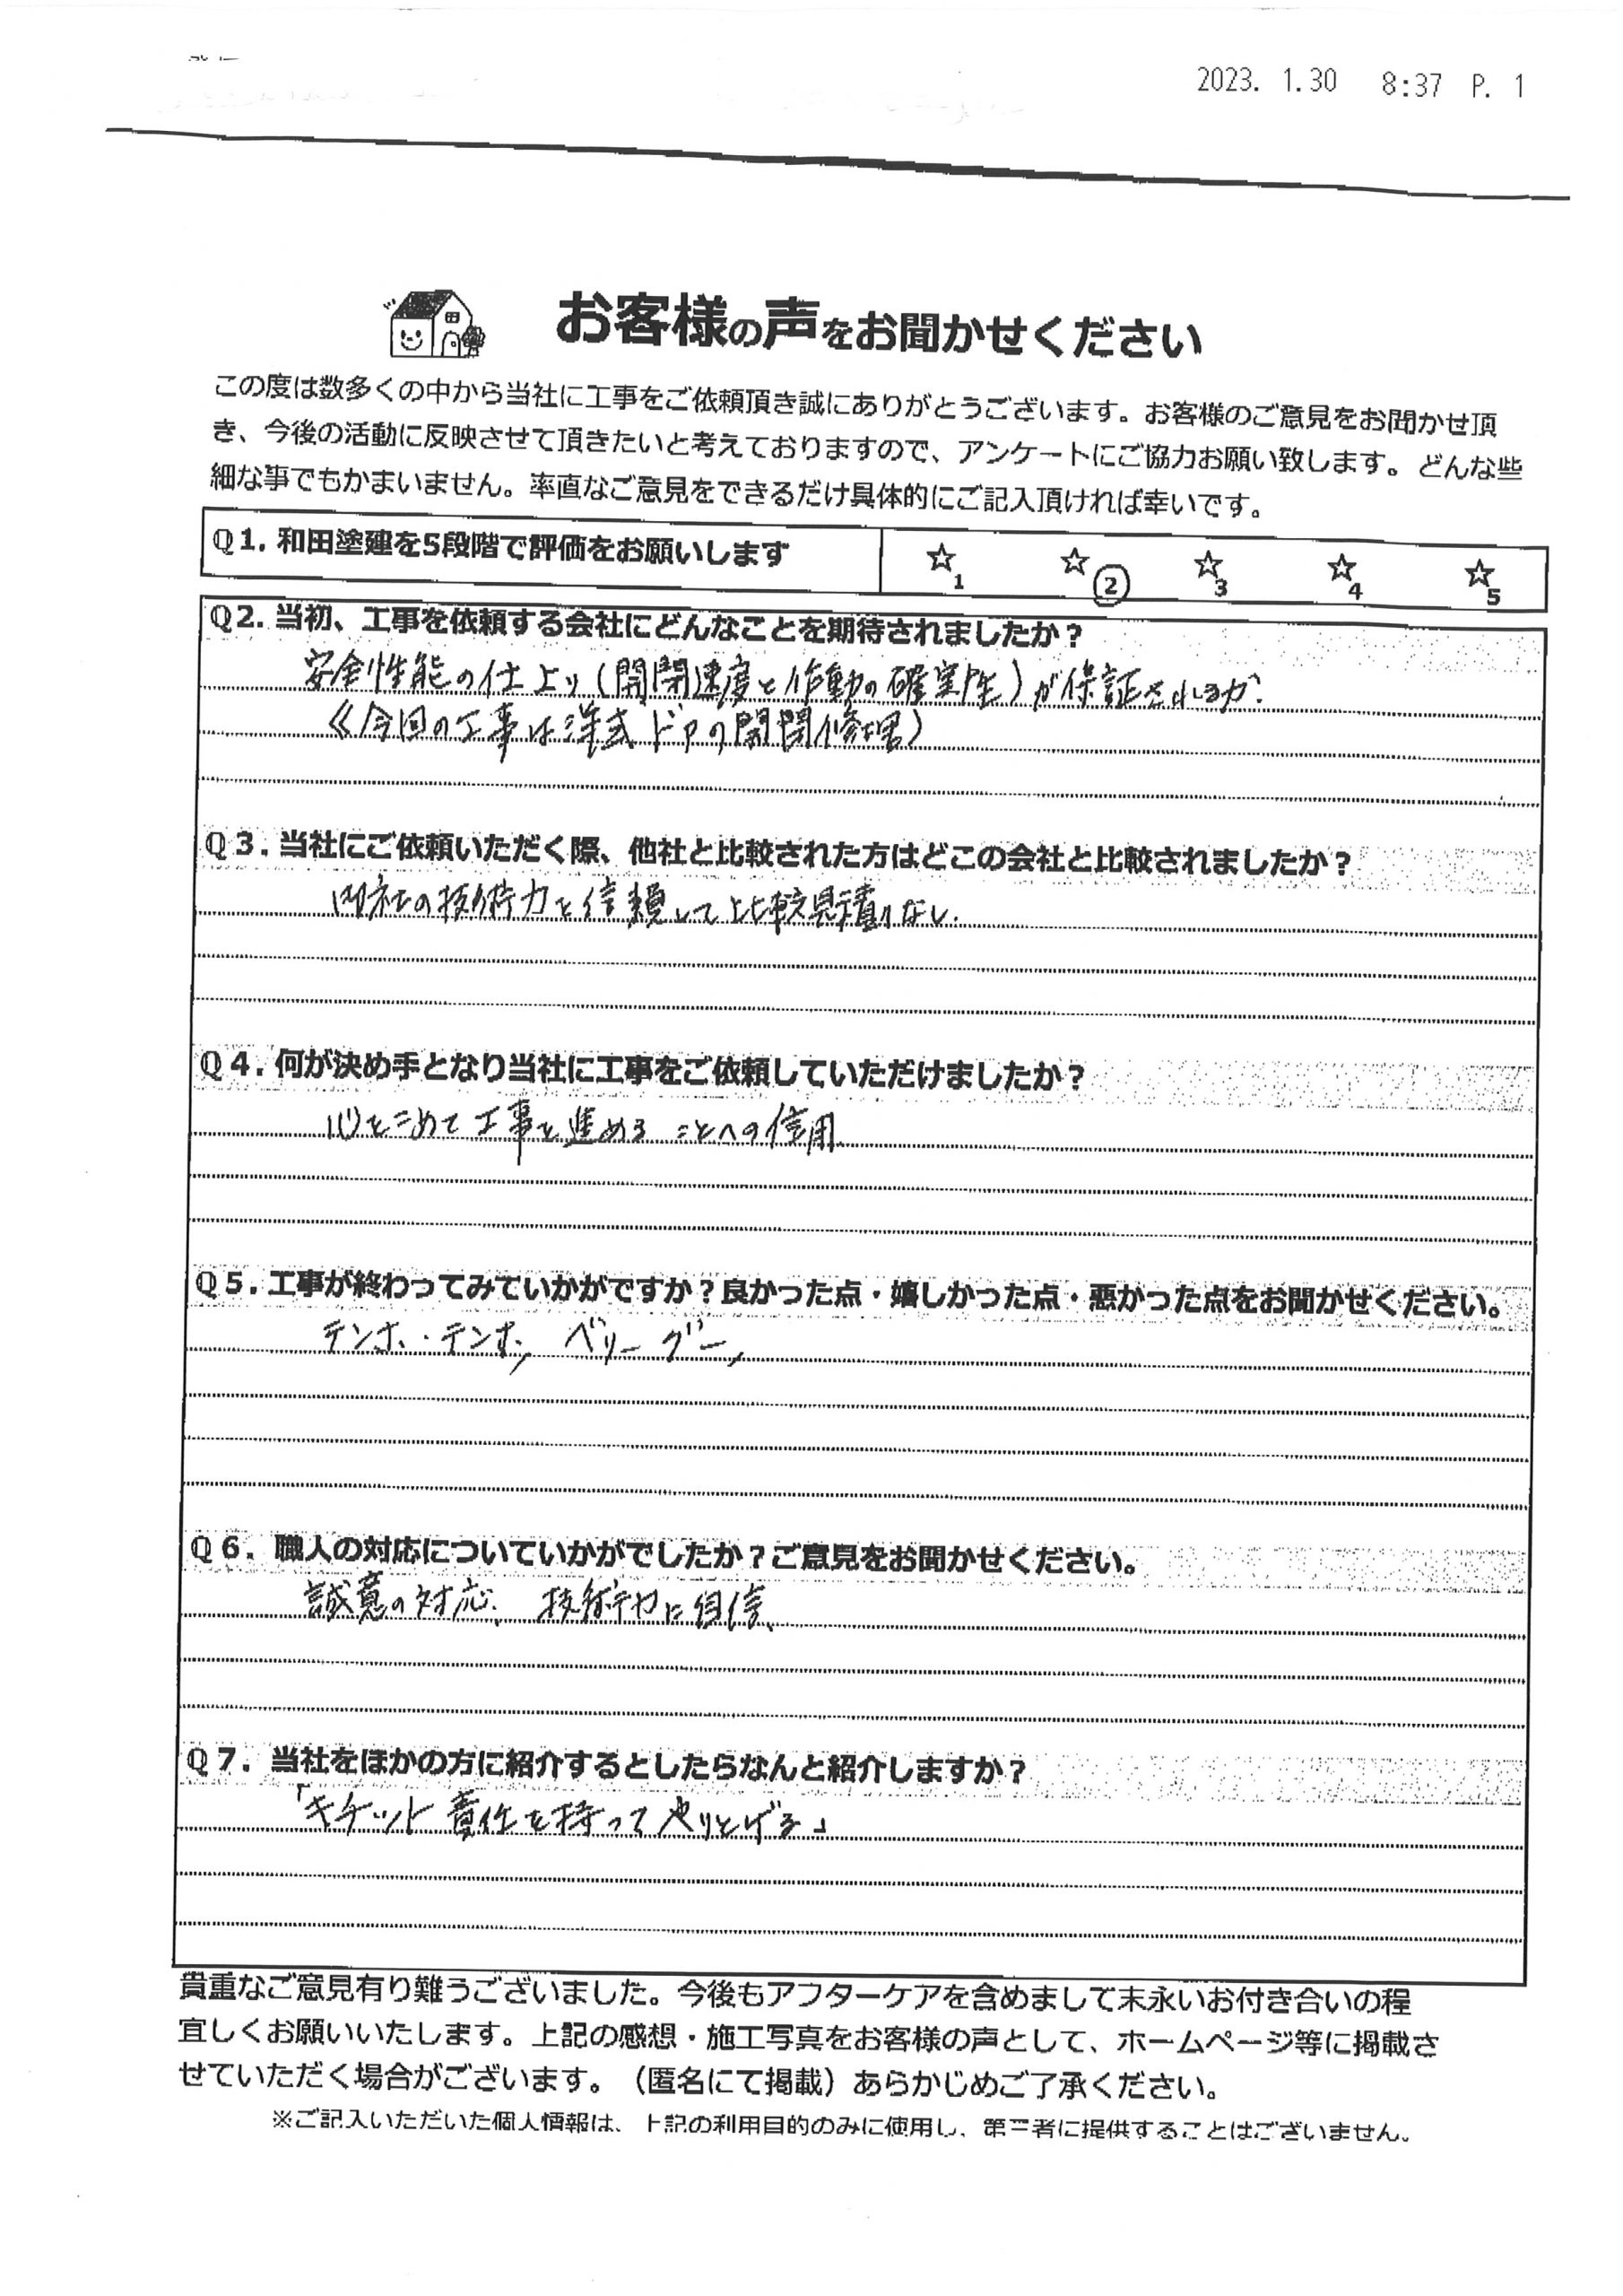 2023. 1.30 8:37 P. 1
お客様の声をお聞かせください
この度は数多くの中から当社に工事をご依頼頂き誠にありがとうございます。お客様のご意見をお聞かせ頂
き、今後の活動に反映させて頂きたいと考えておりますので、アンケートにご協力お願い致します。どんな些
細な事でもかまいません。率直なご意見をできるだけ具体的にご記入頂ければ幸いです。
Q1. 和田塗建を5段階で評価をお願いします ☆1 ☆② ☆3 ☆4 ☆5
Q2. 当初、工事を依頼する会社にどんなことを期待されましたか？
安全性能の仕上り(開閉速度と作動の確実性)が保証されるか?
《今回の工事は洋式ドアの開閉修理)
Q3. 当社にご依頼いただく際、他社と比較された方はどこの会社と比較されましたか？
社の技術力を信頼して比較見積りなし.
Q4. 何が決め手となり当社に工事をご依頼していただけましたか？
心をこめて工事を進めることへの信用
Q5. 工事が終わってみていかがですか？良かった点・嬉しかった点・悪かった点をお聞かせください。
テンホ・テンホ, ベリーグー,
Q6. 職人の対応についていかがでしたか？ご意見をお聞かせください。
誠意の対応、技術力に自信、
Q7. 当社をほかの方に紹介するとしたらなんと紹介しますか？
「キチット責任を持ってやりとげる」
貴重なご意見有り難うございました。今後もアフターケアを含めまして末永いお付き合いの程
宜しくお願いいたします。上記の感想・施工写真をお客様の声として、ホームページ等に掲載さ
せていただく場合がございます。（匿名にて掲載）あらかじめご了承ください。
※ご記入いただいた個人情報は、上記の利用目的のみに使用し、第三者に提供することはございません。